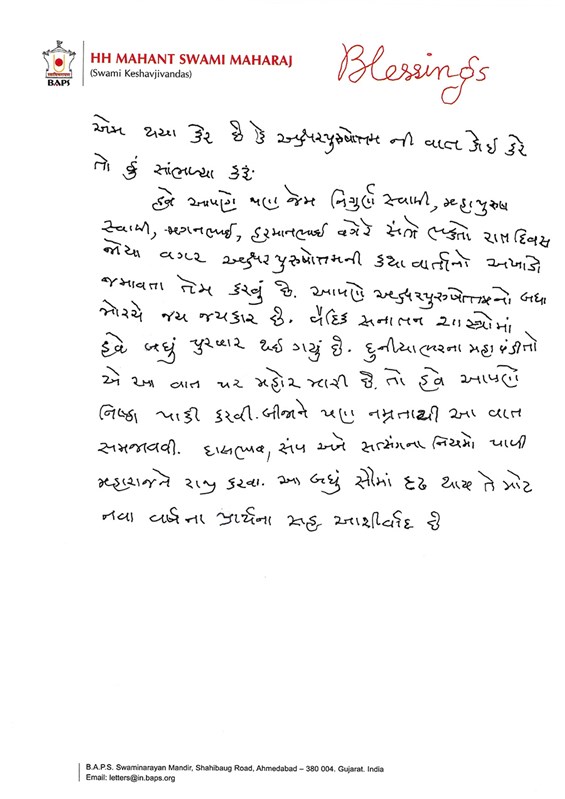 HH MAHANT SWAMI MAHARAJ
(Swami Keshavjivandas)
BAPS
Blessings
એમ થયા કરે છે કે અક્ષરપુરુષોત્તમ ની વાત કોઈ કરે
તો હું સાંભળ્યા કરું.
હવે આપણે પણ જેમ નિર્ગુણ સ્વામી, મહાપુરુષ
સ્વામી, મગનભાઈ, હરમાનભાઈ વગેરે સંતો ભક્તો રાત દિવસ
જોયા વગર અક્ષરપુરુષોત્તમની કથાવાર્તાનો અખાડો
જમાવતા તેમ કરવું છે. આપણે અક્ષરપુરુષોત્તમનો બધા
મોરચે જય જયકાર છે. વૈદિક સનાતન શાસ્ત્રોમાં
હવે બધું પુરવાર થઈ ગયું છે. દુનીયાભરના મહા પંડીતો
એ આ વાત પર મહોર મારી છે. તો હવે આપણે
નિષ્ઠા પાકી કરવી. બીજાને પણ નમ્રતાથી આ વાત
સમજાવવી. દાસભાવ, સંપ અને સત્સંગના નિયમો પાળી
મહારાજને રાજી કરવા. આ બધું સૌમાં દૃઢ થાય તે માટે
નવા વર્ષના પ્રાર્થના સહ આશીર્વાદ છે
B.A.P.S. Swaminarayan Mandir, Shahibaug Road, Ahmedabad – 380 004. Gujarat. India
Email: letters@in.baps.org